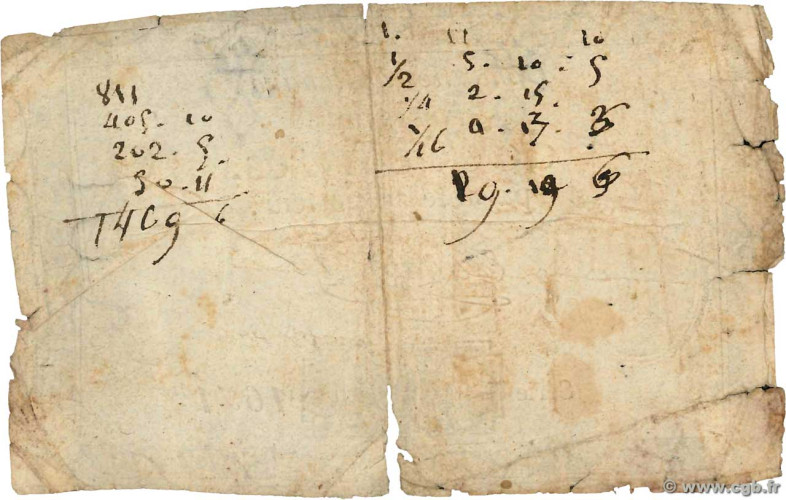 811
405. 10
202. 5.
50. 11
1469 6
1. 11 10
1/2 5. 10. 5
1/4 2. 15.
1/16 0. 13. 
19. 19 6
© www.cgb.fr